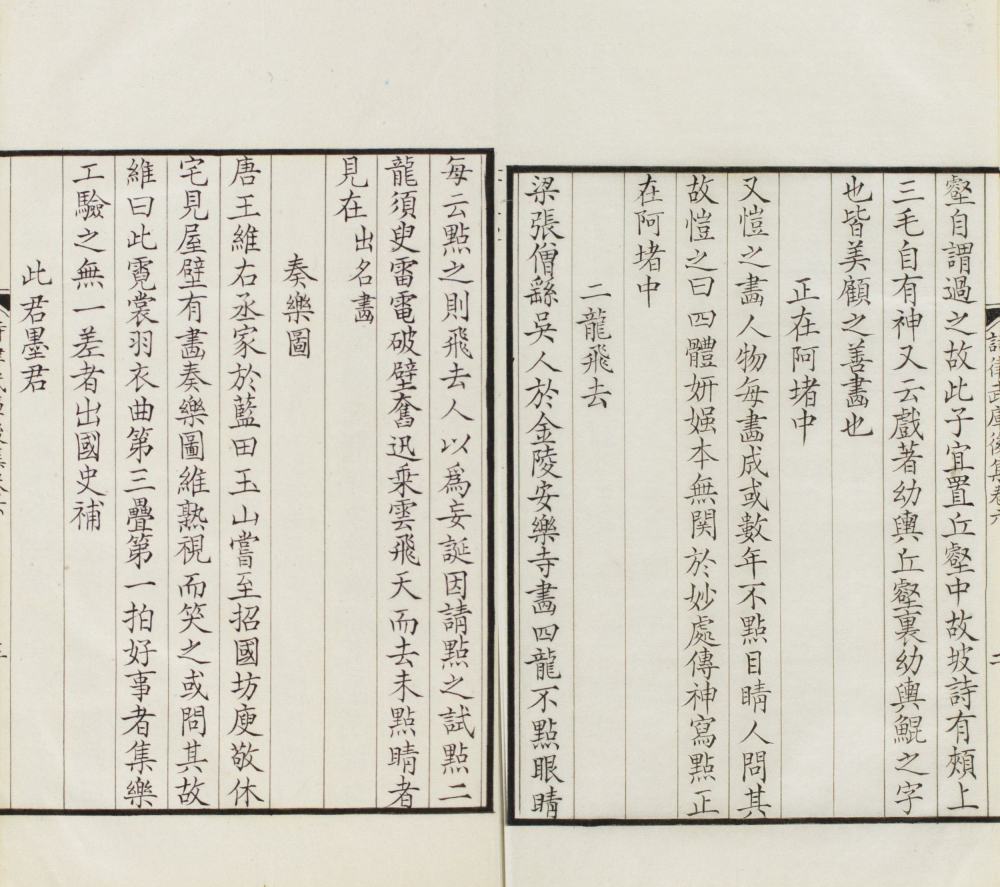 壑自謂過之故此子宜置丘壑中故坡詩有頰上
三毛自有神又云戲著幼輿丘壑裏幼輿鯤之字
也皆美顧之善畵也
正在阿堵中
又愷之畵人物每畵成或數年不點目睛人問其
故愷之曰四體妍媸本無関於妙處傳神寫點正
在阿堵中
二龍飛去
梁張僧繇吳人於金陵安樂寺畵四龍不點眼睛
每云點之則飛去人以爲妄誕因請點之試點二
龍須臾雷電破壁奮迅乘雲飛天而去未點睛者
見在出名畵
奏樂圖
唐王維右丞家於藍田玉山嘗至招國坊庾敬休
宅見屋壁有畵奏樂圖維熟視而笑之或問其故
維曰此霓裳羽衣曲第三疊第一拍好事者集樂
工驗之無一差者出國史補
此君墨君